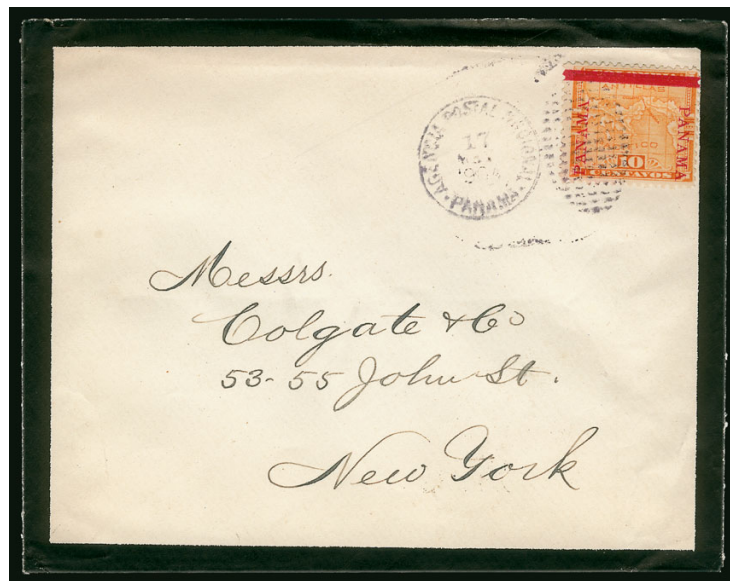 AGENCIA POSTAL NACIONAL
17
1904
PANAMA
PANAMA
PANAMA
10
CENTAVOS
Messrs.
Colgate & Co
53-55 John St.
New York